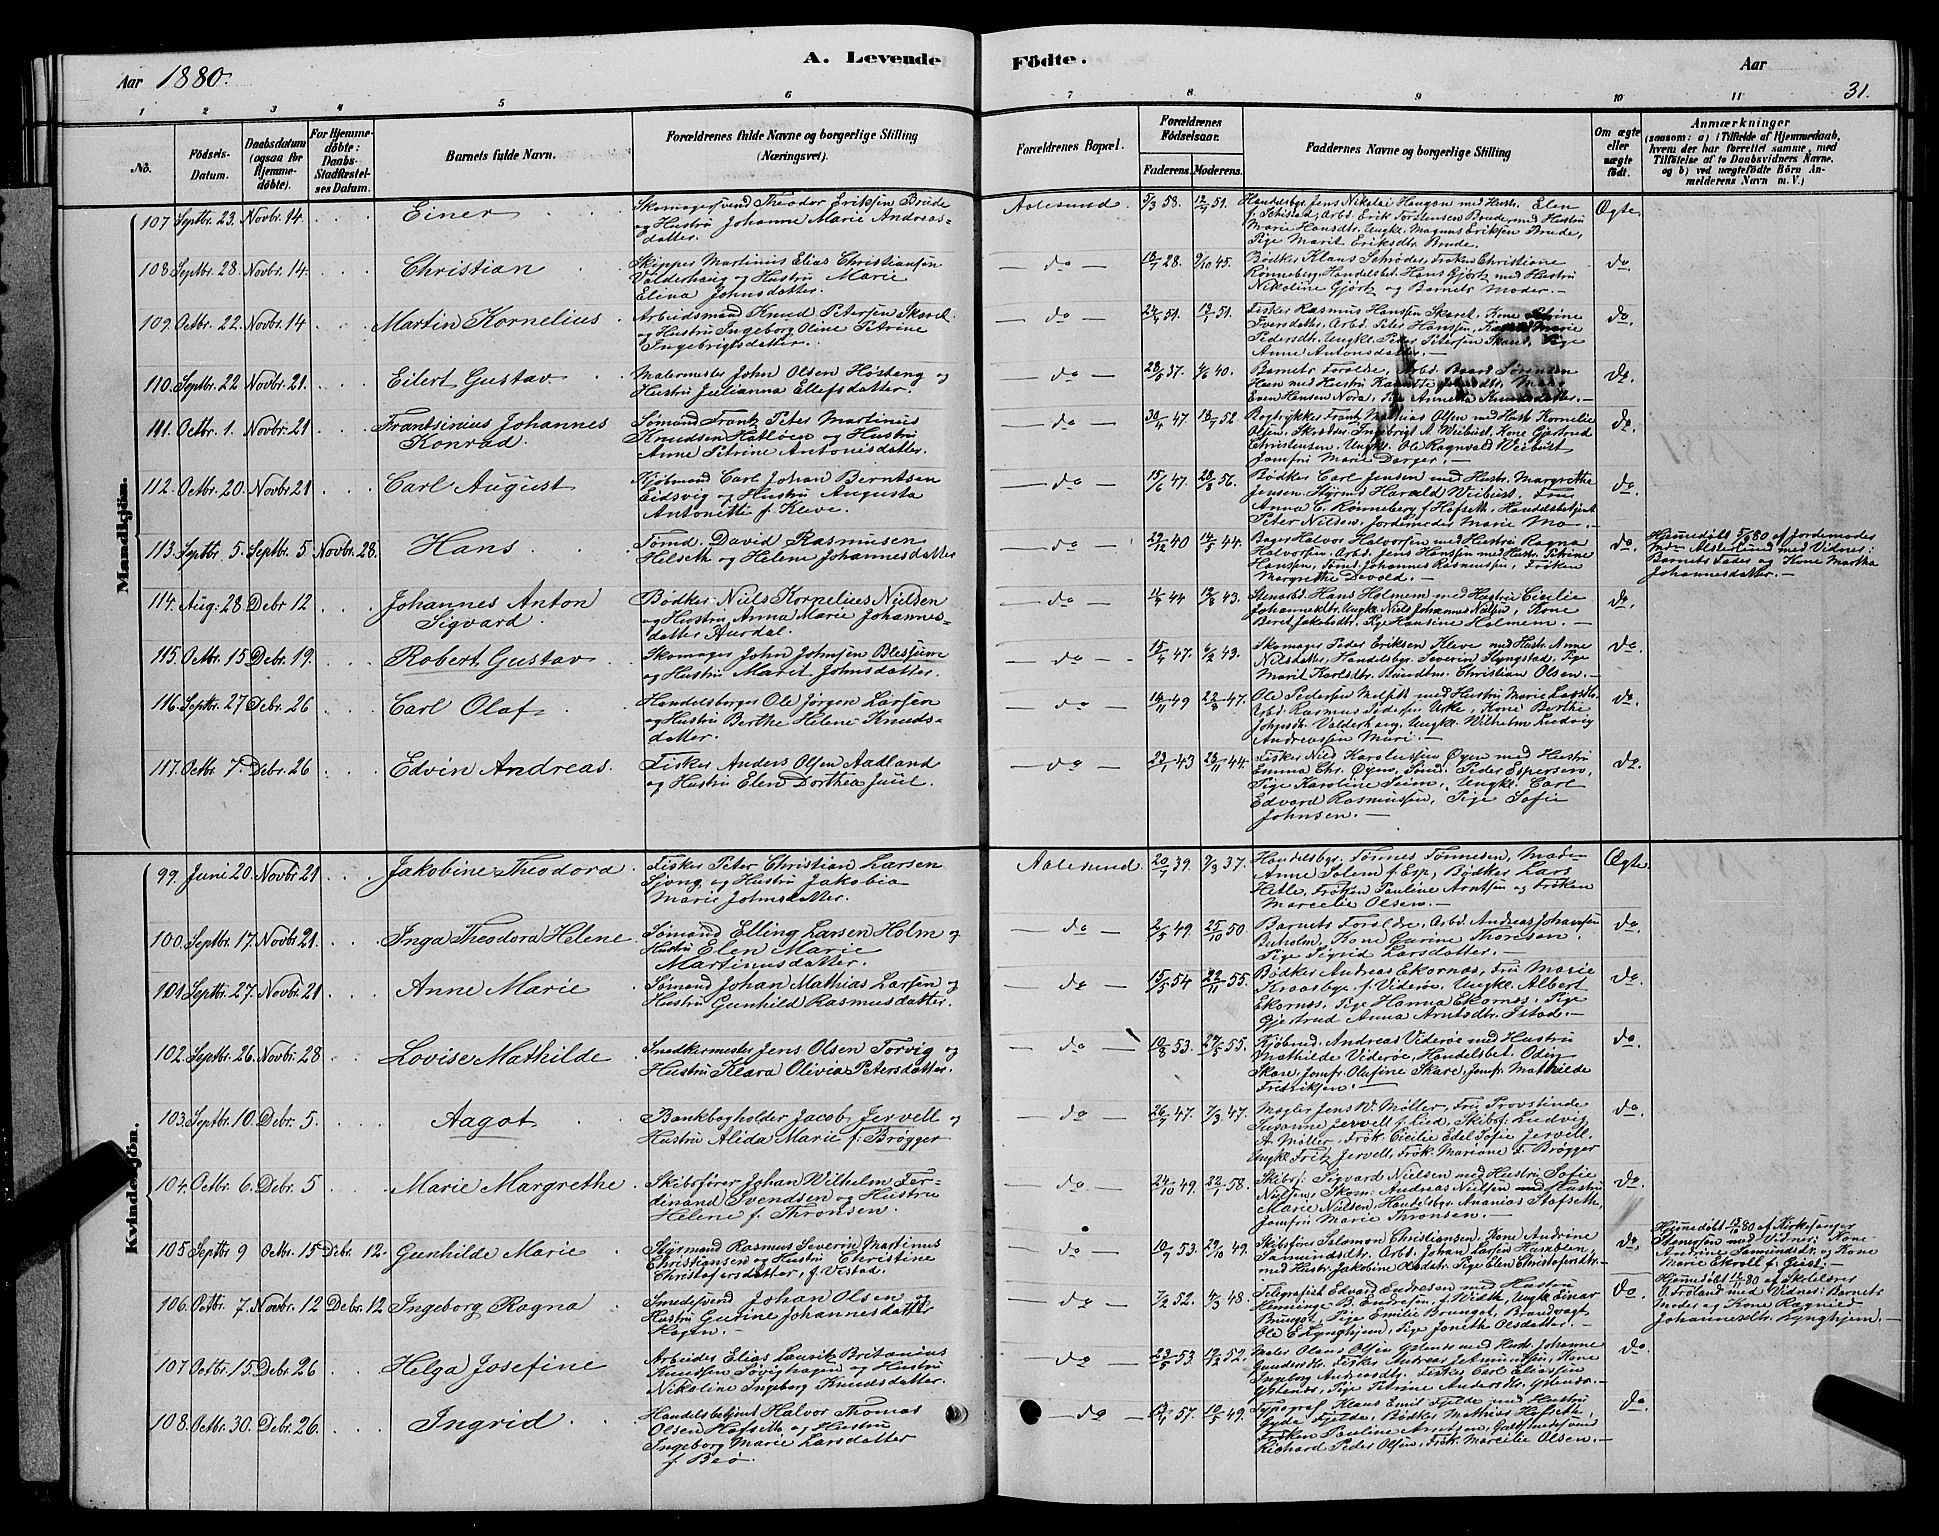 Aar 1880.
A. Levende Födte.
Aar
31.
1 2 3 4 5 6 7 8 9 10 11
No.
Födsels-Datum.
Daabsdatum (ogsaa for Hjemmedöbte).
For Hjemmedöbte: Daabs-Stadfæstelses Datum.
Barnets fulde Navn.
Forældrenes fulde Navne og borgerlige Stilling (Næringsvei).
Forældrenes Bopæl.
Forældrenes Födselsaar.
Faderens. Moderens.
Faddernes Navne og borgerlige Stilling
Om ægte eller uægte födt.
Anmærkninger
(saasom: a) i Tilfælde af Hjemmedaab, hvem der har forrettet samme, med Tilföielse af to Daabsvidners Navne, og b) ved uægtefödte Börn Anmelderens Navn m. V.)
Mandkjön.
107. Septbr. 23. Novbr. 14. Einer
Skomagersvend Theodor Eriksen Brude
og Hustru Johanne Marie Andreas-
datter.
Aalesund. 5/3 58. 51.
Handelsbgr. Jens Nikolai Haugan med Hust. Elen
f. Schistad, Arbd. Erik Torstensen Brude med Hustru
Marie Hansdtr. Ungkl. Magnus Eriksen Brude,
Pige Marit Eriksdtr. Brude.
Ægte
108. Septbr. 28. Novbr. 14. Christian
Skipper Martinus Elias Christiansen
Valderhaug og Hustru Marie
Elina Johnsdatter.
do 28. 9/10 45.
Bødker Klaus Schrøder, Frøken Christiane
Rønneberg, Handelsbet. Hans Gjørtz med Hustru
Nikoline Gjørtz og Barnets Moder.
do.
109. Octbr. 22. Novbr. 14 Martin Kornelius
Arbeidsmand Knud Petersen Skaret
og Hustru Ingeborg Oline Petrine
Ingebrigtsdatter.
do 51. 51.
Fisker Rasmus Hanssen Skaret, Kone
Iversdatter, Arbd. Peter Hanssen, Marie
Pedersdtr. Ungkl. Peder Petersen Skaret, Pige
Anne Antonsdatter.
do.
110. Septbr. 22 Novbr. 21. Eilert Gustav
Malermester John Olsen Høsteng og
Hustru Julianna Ellefsdatter.
do 37. 4/6 40.
Barnets Forældre, Arbd. Baard Sørensen
med Hustru
Even Hansen Nora, Pige Annette Knudsdatter.
do.
111. Octbr. 1. Novbr. 21 Frantsinius Johannes
Konrad.
Sømand Frantz Peter Martinus
Knudsen Hatløen og Hustru
Anne Petrine Antonesdatter.
do 47. 52
Bogtrykker Frantz Mathias Olsen med Hust. Kornelie
Olsen, Skrædder Ingebrigt A. Weibust, Kone Gjertrud
Christensen, Ungkl. Ole Ragnvald Weibust
Jomfru Marie
do.
112. Octbr. 20. Novbr. 21 Carl August
Kjøbmand Carl Johan Berntsen
Eidsvig og Hustru Augusta
Antonette f. Kleve.
do 15/6 47. 56.
Bødker Carl Jensen med Hustr. Margrethe
Jensen. Styrmd. Harald Weibust, Frue
Anna C. Rønneberg f. Hofseth, Handelsbetjent
Peter Nilsen, Jordemoder Marie Mo.
do.
113. Septbr. 5. Septbr. 5 Novbr. 28. Hans
Tømd. David Rasmusen
Helseth og Helene Johannesdatter
do 29/12 40 44.
Bager Halvor Halvorsen med Hustru Ragna
Halvorsen, Arbd. Jens Hanssen med Hust. Petrine
Hanssen, Tømd. Johannes Rasmussen, Frøken
Margrethe Devold.
do.
Hjemmedøbt 5/9 80 af Jordemoder
Alsterlund med Vidner:
Barnets Fader og Kone Martha
Johannesdatter.
114. Aug: 28 Debr 12 Johannes Anton
Sigvard.
Bødker Niels Kornelius Nielsen
og Hustru Anna Marie Johannes-
datter Aurdal.
do 44 43.
Stenarbd. Hans Holmem med Hustru Cecilie
Johannedtr. Ungkl. Niels Johannes Nielsen, Kone
Beret Jakobsdtr. Pige Hansine Holmem.
do.
115. Octbr. 15 Debr. 19. Robert Gustav
Skomager John Johnsen Blesjum
og Hustru Marit Johnsdatter.
do 47. 43.
Skomager Peder Eriksen Kleve med Hust. Anne
Nilsdatter, Handelsbgr. Severin Slyngstad, Pige
Marit Karlsdtr. Bundtm. Christian Olsen.
do.
116. Septbr. 27 Debr. 26 Carl Olaf
Handelsborger Ole Jørgen Larsen
og Hustru Berthe Helene Knuds-
datter.
do 49 47.
Ole Pedersen med Hustru Marie Larsdtr.
Arbd. Rasmus Pedersen Urke, Kone Berthe
Johnsdtr. Valderhaug, Ungkl. Wilhelm Ludvig
Andreassen
do.
117. Octbr. 7. Debr. 26 Edvin Andreas.
Fisker Anders Olsen Aadland
og Hustru Elen Dorthea Juul.
do 43 44.
Fisker Nils Karolussen Øyen med Hustru
Emma Chr. Øyen, Sømd. Peder Espersen,
Pige Karoline Seim, Ungkl. Carl
Edvard Rasmussen, Pige Sofie
Johnsen.
do.
Kvindekjön.
99. Juni 20. Novbr. 21 Jakobine Theodora
Fisker Peter Christian Larsen
Sjong og Hustru Jakobia
Marie Johnsdatter.
Aalesund. 39. 37.
Handelsbgr. Tønnes Tønnesen, Mad.
Anne Solem f. Esp, Bødker Lars
Hetle, Frøken Pauline Arntsen og Frøken
Marcelie Olsen.
Ægte.
100. Septbr. 17. Novbr. 21. Inga Theodora Helene
Sømand Elling Larsen Holm og
Hustru Elen Marie
Martinusdatter.
do 2/5 49. 25/10 50.
Barnets Forældre, Arbd. Andreas Johansen
Buholm, Kone Gurine Thoresen.
Pige Sigrid Larsdatter.
do.
101 Septbr. 27. Novbr. 21 Anne Marie
Sømand Johan Mathias Larsen og
Hustru Gunhild Rasmusdatter.
do 15/5 54 22/11 55.
Bødker Andreas Ekornæs, Fru Marie
Kraasbye f. Viderøe, Ungkl. Albert
Ekornæs, Pige Hanna Ekornæs. Pige
Gjertrud Anna Arntsdtr. Istad.
do.
102. Septbr. 26. Novbr: 28 Lovise Mathilde
Snedkermester Jens Olsen Torvig og
Hustru Klara Olivia Petersdatter.
do 53. 55.
Kjøbmd. Andreas Viderøe med Hustru
Mathilde Viderøe, Handelsbet. Odin
Skare, Jomfr. Olufine Skare, Jomfr. Mathilde
Fredriksen.
do.
103. Septbr. 10. Debr. 5. Aagot
Bankbogholder Jacob Jervell og
Hustru Alida Marie f. Brøgger
do 47. 47.
Mægler Jens W. Møller, Fru Provstinde
Susanne Jervell f. Lied, Skibsf. Ludvig
A. Møller, Frøk. Cicilie Edel Sofie Jervell.
Ungkl. Fritz Jervell, Frøk. Mariane F. Brøgger
do.
104. Octbr. 6. Debr. 5 Marie Margrethe
Skibsfører Johan Wilhelm Fer-
dinand Svendsen og Hustru
Helene f. Thronsen.
do 24/10 49. 58.
Skibsf. Sigvard Nielsen med Hustru Sofie
Nielsen, Skom. Andreas Nielsen med Hustru
Marie Nielsen, Handelsbgr. Ananias Stafseth,
Jomfru Marie Thronsen.
do.
105 Septbr 9 Octbr. 15 Debr. 12. Gunhilde Marie
Styrmand Rasmus Severin Martinus
Christiansen og Hustru Christine
Christofersdatter, f. Vestad.
do 53. 49.
Skibsføre Salomon Christiansen, Kone Andrine
Samundsdtr. Arbd. Johan Larsen Humblen
med Hustr. Jakobine Olsdatr. Pige Elen Christofersdtr.
do.
Hjemmedøbt 80 af Kirkesanger
Stenersen med Vidner: Kone
Andrine Samundsdtr. og Kone
Marie Ekroll f. Giest.
106. Octbr. 7. Novbr. 12 Debr. 12 Ingeborg Ragna
Smedsvend Johan Olsen og
Hustru Gurine Johannesdatter
Hagen.
do 7/2 52. 4/3 48.
Telegrafist Edvard Endresen med Hustru
Henninge B. Endresen f. Width, Ungkl. Einar
Brunget, Pige Emilie Brunget, Brandvagt
Ole E. Lynghjem, Pige Jonette Olsdatter.
do.
Hjemmedøbt 80 af Skolelærer
O. Frøland med Vidner: Barnets
Moder og Kone Ragnild
Johannesdtr. Lynghjem.
107 Octbr. 15 Debr. 26 Helga Josefine
Arbeider Elias Lauritz Britanius
Knudsen Søvighagen og Hustru
Nikoline Ingeborg Knudsdatter.
do 53. 52.
Olaus Olsen Ystenes med Hust. Johanne
Gundersdtr. Fisker Andreas Jetmundsen, Kone
Ingeborg Andreasdtr. Fisker Carl Eliassen
Ystenes, Pige Petrine Andersdtr. Ystenes.
do
108. Octbr. 30. Debr. 26. Ingrid
Handelsbetjent Halvor Thomas
Olsen Hofseth og Hustru
Ingeborg Marie Larsdatter
f. Beiø.
do 57. 49.
Typograf Klaus Emil Fjelde med Hustru
Gyda Fjelde, Bødker Mathias Hofseth,
Frøken Pauline Arntsen, Guldsmedsvend
Richard Peder Olsen, Frøk. Marcelie Olsen.
do.